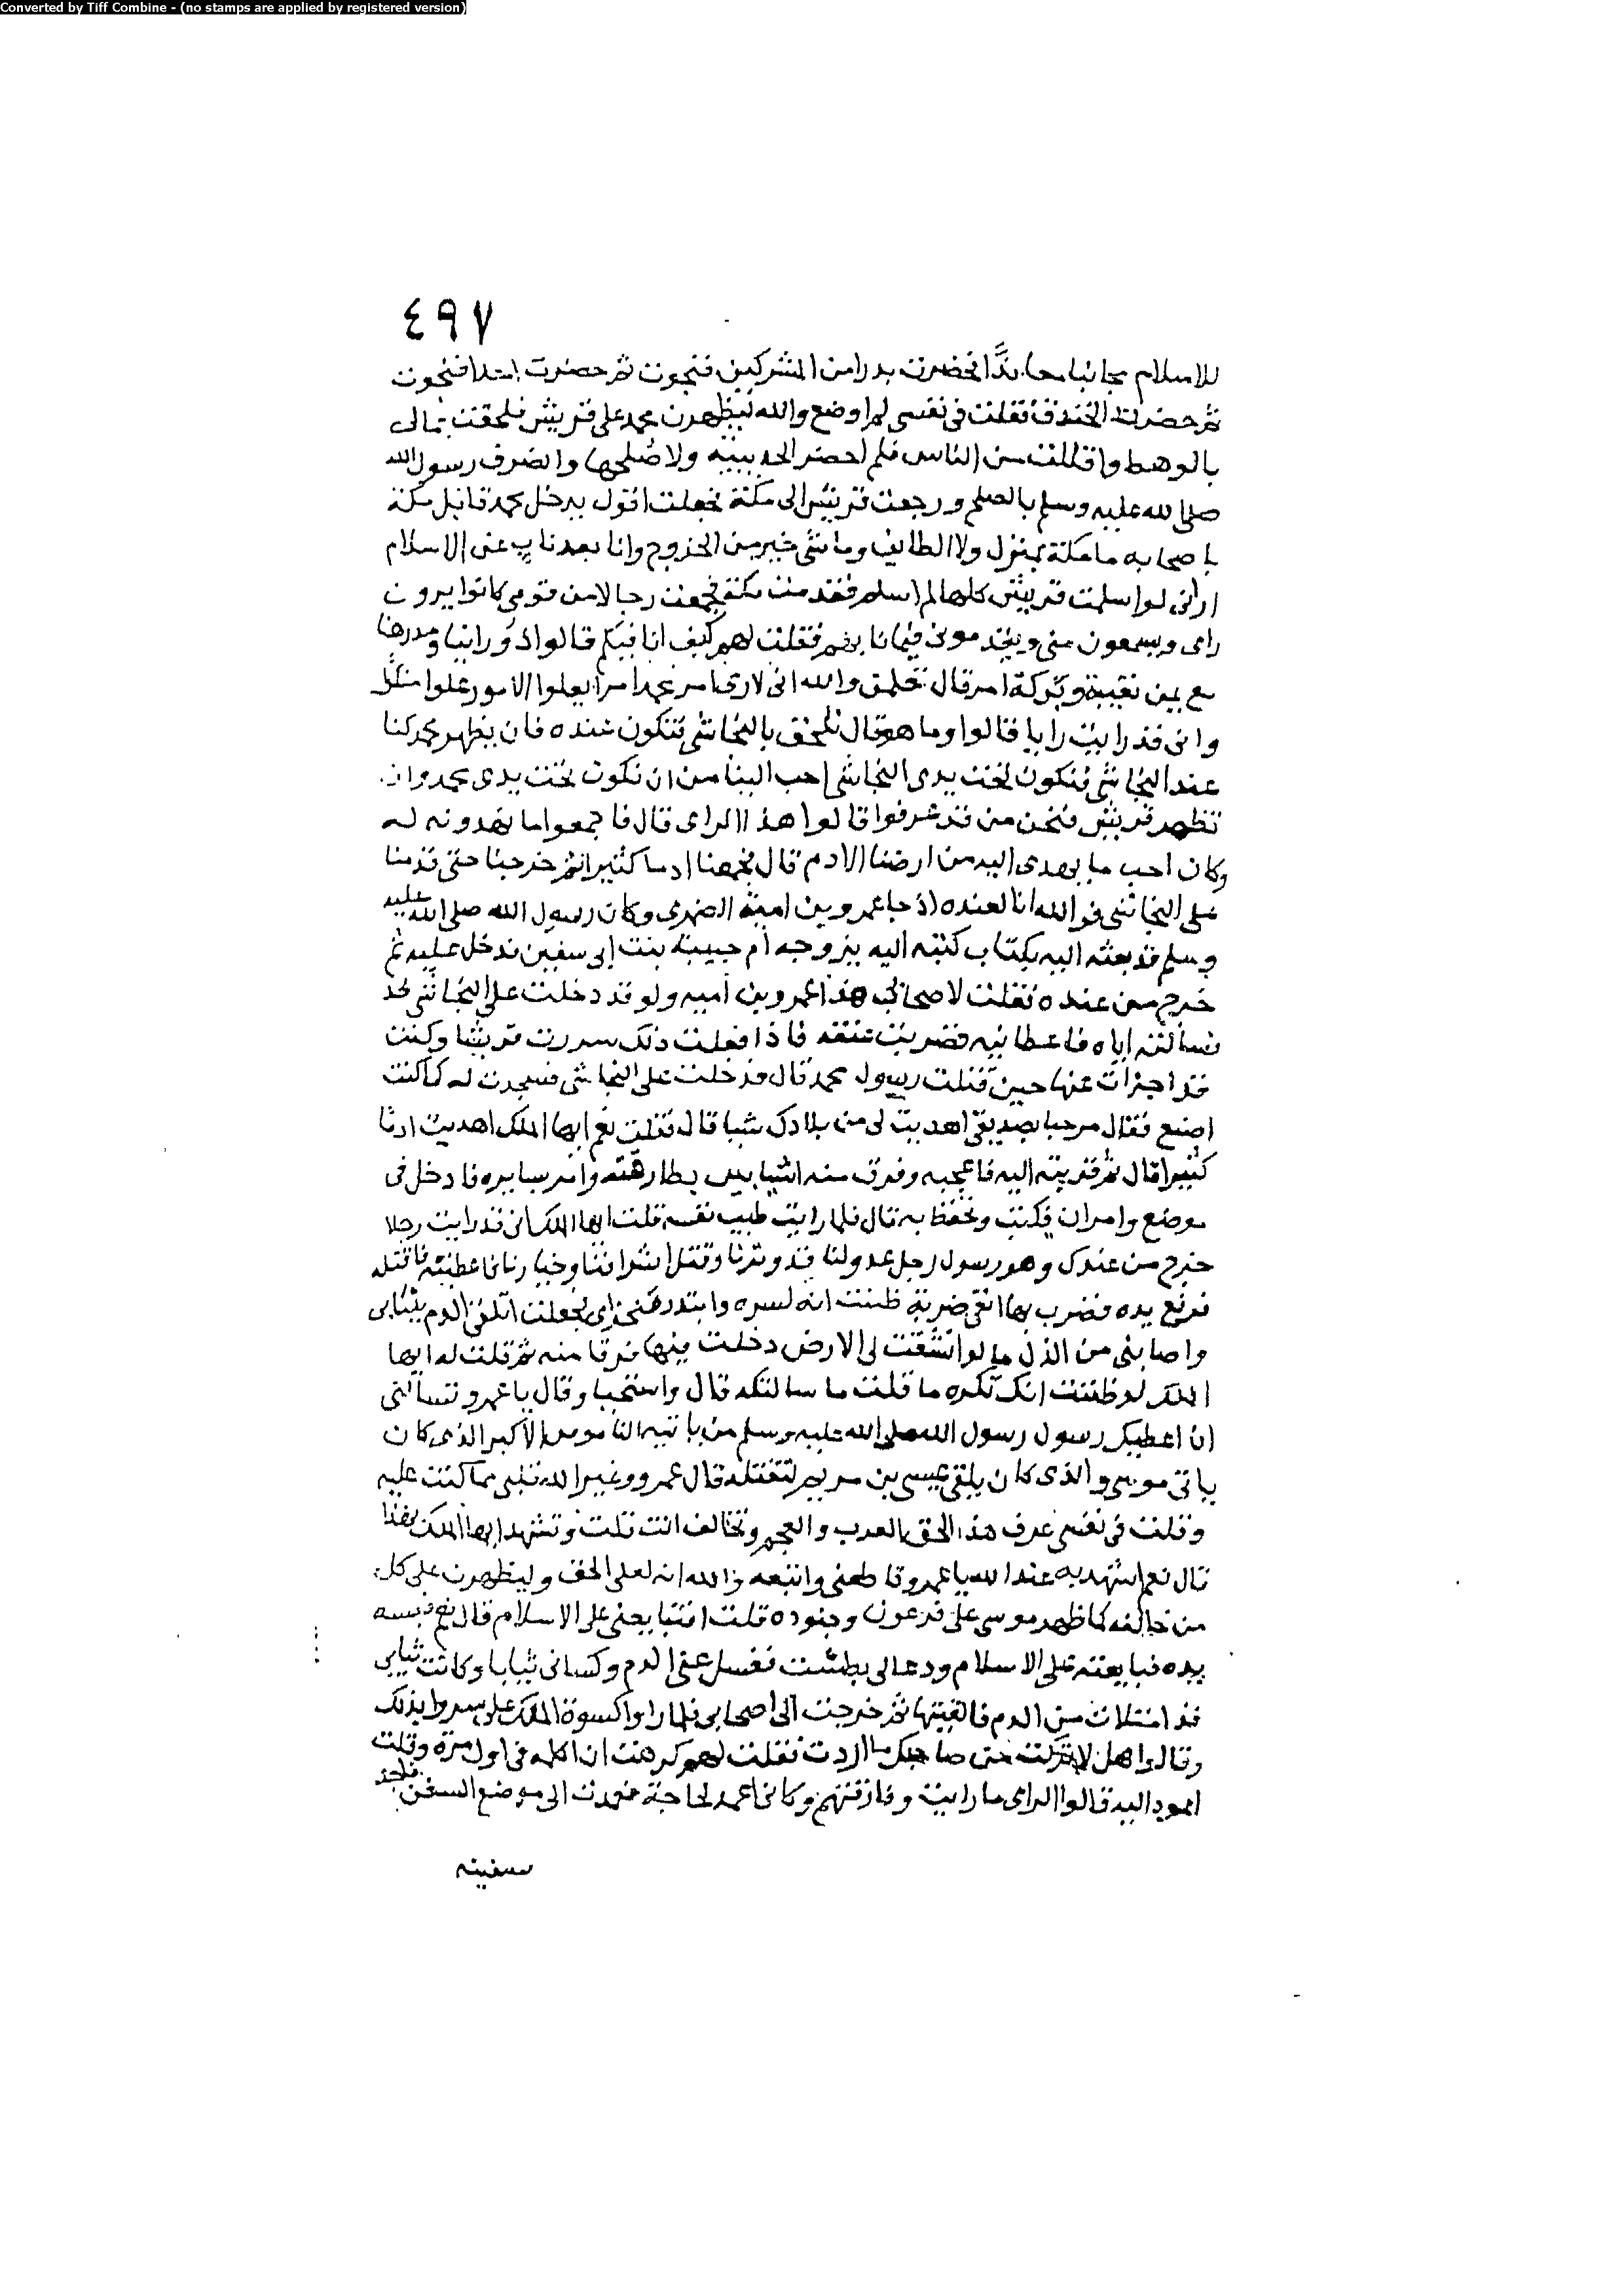 Converted by Tiff Combine - (no stamps are applied by registered version)
٤٩٧
للاسلام مجانبا معاندا فحضرت بدرا من المشركين فنجوت ثم حضرت احدا فنجوت
ثم حضرت الخندق فقلت في نفسي لم اوضع والله ليظهرن محمد على قريش فلحقت بمالى
بالوهط واقللت من الناس فلم احضر الحديبية ولا صلحها وانصرف رسول الله
صلى الله عليه وسلم بالصلح ورجعت قريش الى مكة فجعلت اقول يدخل محمد قابل مكة
باصحابه ما مكة بمنزل ولا الطايف وما شي خير من الخروج وانا بعد ناب عن الاسلام
ارانى لو اسلمت قريش كلها لم اسلم فقدمت مكة فجمعت رجالا من قومي كانوا يرون
رايى ويسمعون منى ويقدمونى فيما نابهم فقلت لهم كيف انا فيكم قالوا ذو راينا ومدرهنا
مع يمن نقيبة وبركة امر قال تعلمن والله انى لارى امر محمد امرا يعلوا الامور علوا منكرا
وانى قد رايت رايا قالوا وما هو قال نلحق بالنجاشى فنكون عنده فان يظهر محمد كنا
عند النجاشى فنكون تحت يدى النجاشى احب الينا من ان نكون تحت يدى محمد وان
تظهر قريش فنحن من قد عرفوا قالوا هذا الراى قال فاجمعوا ما تهدونه له
وكان احب ما يهدى اليه من ارضنا الادم قال فجمعنا ادما كثيرا ثم خرجنا حتى قدمنا
على النجاشى فوالله انا لعنده اذ جا عمرو بن امية الضمرى وكان رسول الله صلى الله عليه
وسلم قد بعثه اليه بكتاب كتبه اليه يزوجه ام حبيبة بنت ابى سفين فدخل عليه ثم
خرج من عنده فقلت لاصحابى هذا عمرو بن اميه ولو قد دخلت على النجاشى
فسالته اياه فاعطانيه فضربت عنقه فاذا فعلت ذلك سررت قريشا وكنت
قد اجزات عنها حين قتلت رسول محمد قال فدخلت على النجاشى فسجدت له كما كنت
اصنع فقال مرحبا بصديقى اهديت لى من بلادك شيا قال فقلت نعم ايها الملك اهديت ادما
كثيرا قال ثم قربته اليه فاعجبه وفرق منه اشيا بين بطارقته وامر بسايره فادخل فى
موضع وامر ان يكتب ويحفظ به قال فلما رايت طيب نفسه قلت ايها الملك انى قد رايت رجلا
خرج من عندك وهو رسول رجل عدو لنا قد وترنا وقتل اشرافنا وخيارنا فاعطنيه فاقتله
فرفع يده فضرب بها انفى ضربة ظننت انه كسره وابتدر منخراى فجعلت اتلقى الدم بثيابى
واصابنى من الذل ما لو انشقت لى الارض دخلت فيها فرقا منه ثم قلت له ايها
الملك لو ظننت انك تكره ما قلت ما سالتكه قال واستحيا وقال يا عمرو تسالنى
ان اعطيك رسول رسول الله صلى الله عليه وسلم من ياتيه الناموس الاكبر الذى كان
ياتى موسى والذى كان يلقى عيسى بن مريم لتقتله قال عمرو وغير الله قلبى عما كنت عليه
وقلت فى نفسى عرف هذا الحق العرب والعجم وتخالف انت قلت وتشهد ايها الملك بهذا
قال نعم اشهد به عند الله يا عمرو فاطعنى واتبعه والله انه لعلى الحق وليظهرن على كل
من خالفه كما ظهر موسى على فرعون وجنوده قلت افتبايعنى على الاسلام قال نعم فبسط
يده فبايعته على الاسلام ودعا لى بطست فغسل عنى الدم وكسانى ثيابا وكانت ثيابى
قد امتلات من الدم فالقيتها ثم خرجت الى اصحابى فلما راوا كسوة الملك على سروا بذلك
وقالوا هل ادركت من صاحبك ما اردت فقلت لهم كرهت ان اكلمه فى اول مرة وقلت
اعود اليه قالوا الراى ما رايت وفارقتهم وكانى اعمد لحاجة فعمدت الى موضع السفن فاجد
سفينه